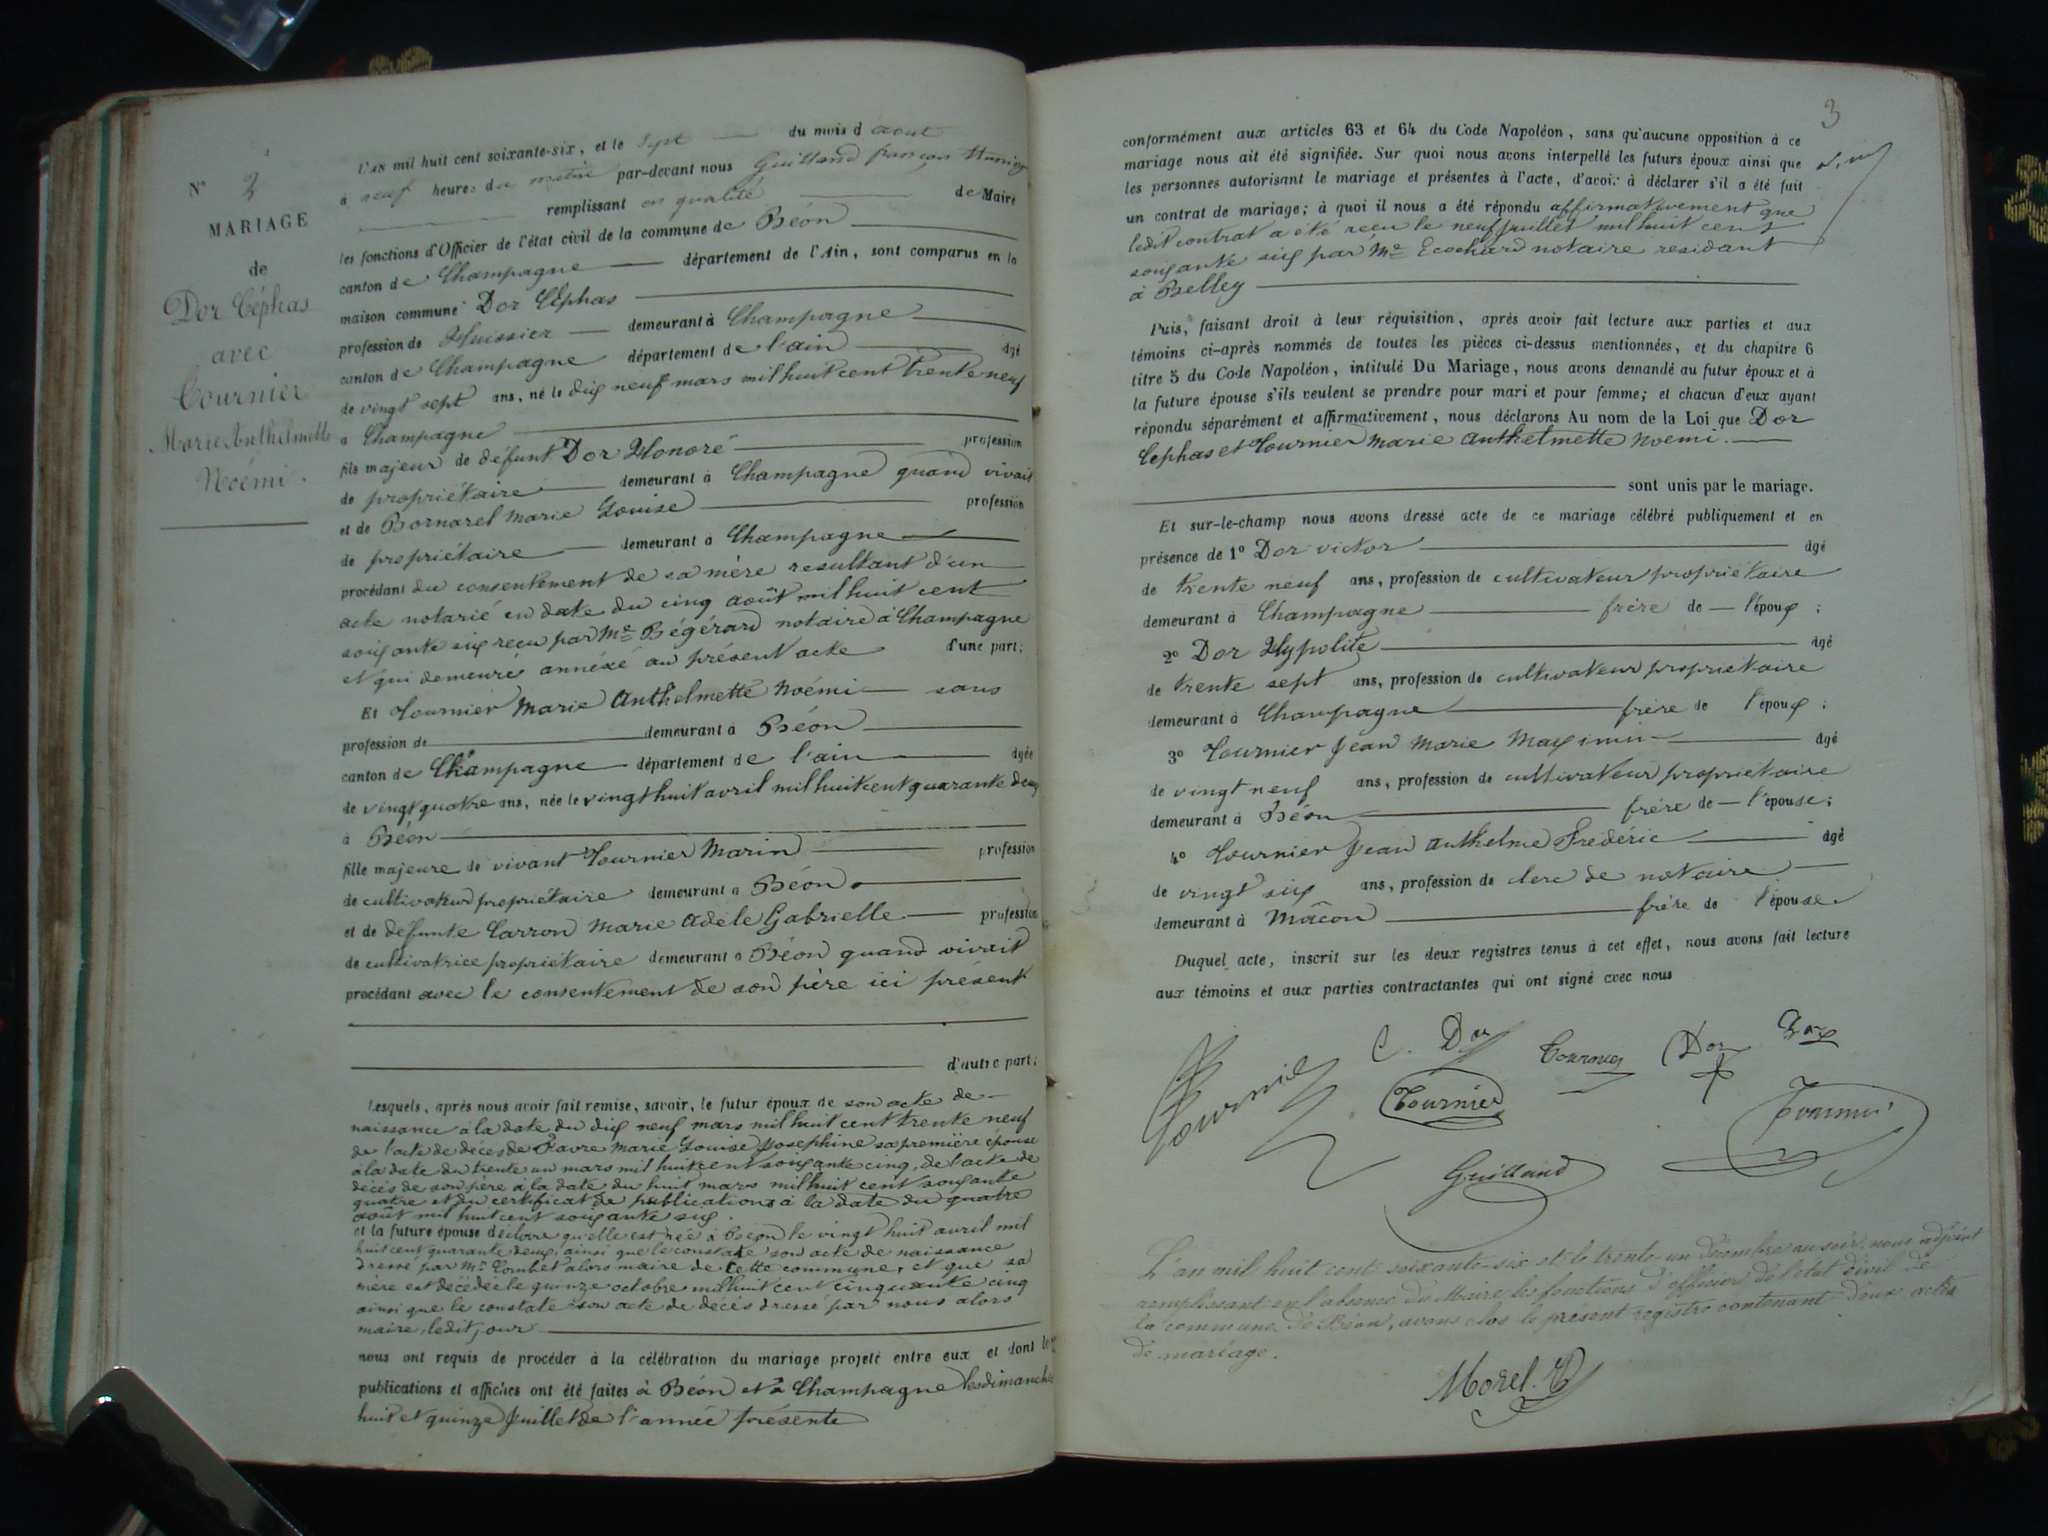 N° 2
MARIAGE
de
Dor Céphas
avec
Tournier
Marie Anthelmette
Noémi.
L'AN mil huit cent soixante-six, et le sept du mois d'aout
à neuf heures du matin par-devant nous Guilland françois
remplissant en qualité de Maire
les fonctions d'Officier de l'état civil de la commune de Béon
canton de Champagne département de l'Ain, sont comparus en la
maison commune Dor Céphas
profession de Huissier demeurant à Champagne
canton de Champagne département de l'ain âgé
de vingt sept ans, né le dix neuf mars mil huit cent trente neuf
à Champagne
fils majeur de défunt Dor Honoré profession
de propriétaire demeurant à Champagne quand vivait
et de Bornarel Marie Louise profession
de propriétaire demeurant à Champagne
procédant du consentement de sa mère resultant d'un
acte notarié en date du cinq août mil huit cent
soixante six reçu par Me Bégérard notaire à Champagne
et qui demeure annéxé au présent acte d'une part;
Et Tournier Marie Anthelmette Noémi sans
profession de demeurant à Béon
canton de Champagne département de l'ain âgée
de vingt quatre ans, née le vingt huit avril mil huit cent quarante deux
à Béon
fille majeure de vivant Tournier Marin profession
de cultivateur propriétaire demeurant à Béon
et de défunte Carron Marie Adèle Gabrielle profession
de cultivatrice propriétaire demeurant à Béon quand vivait
procédant avec le consentement de son père ici présent
d'autre part;
Lesquels, après nous avoir fait remise, savoir, le futur époux de son acte de
naissance à la date du dix neuf mars mil huit cent trente neuf
de l'acte de décès de Favre Marie Louise Josephine sa première épouse
à la date du trente un mars mil huit cent soixante cinq, de l'acte de
décès de son père à la date du huit mars mil huit cent soixante
quatre et du certificat de publications à la date du quatre
août mil huit cent soixante six.
et la future épouse déclare qu'elle est née à Béon le vingt huit avril mil
huit cent quarante deux, ainsi que le constate son acte de naissance
dressé par Mr Combet alors maire de cette commune, et que sa
mère est décédée le quinze octobre mil huit cent cinquante cinq
ainsi que le constate son acte de décès dressé par nous alors
maire, ledit jour
nous ont requis de procéder à la célébration du mariage projeté entre eux et dont les
publications et affiches ont été faites à Béon et à Champagne les dimanches
huit et quinze Juillet de l'année présente
3
conformément aux articles 63 et 64 du Code Napoléon, sans qu'aucune opposition à ce
mariage nous ait été signifiée. Sur quoi nous avons interpellé les futurs époux ainsi que
les personnes autorisant le mariage et présentes à l'acte, d'avoir à déclarer s'il a été fait
un contrat de mariage; à quoi il nous a été répondu affirmativement que
ledit contrat a été reçu le neuf juillet mil huit cent
soixante six par Me Ecochard notaire residant
à Belley
Puis, faisant droit à leur réquisition, après avoir fait lecture aux parties et aux
témoins ci-après nommés de toutes les pièces ci-dessus mentionnées, et du chapitre 6
titre 5 du Code Napoléon, intitulé Du Mariage, nous avons demandé au futur époux et à
la future épouse s'ils veulent se prendre pour mari et pour femme; et chacun d'eux ayant
répondu séparément et affirmativement, nous déclarons Au nom de la Loi que Dor
Céphas et Tournier Marie Anthelmette Noemi.
sont unis par le mariage.
Et sur-le-champ nous avons dressé acte de ce mariage célébré publiquement et en
présence de 1° Dor victor âgé
de trente neuf ans, profession de cultivateur propriétaire
demeurant à Champagne frère de l'époux;
2° Dor Hypolite âgé
de trente sept ans, profession de cultivateur propriétaire
demeurant à Champagne frère de l'époux;
3° Tournier Jean Marie Maximin âgé
de vingt neuf ans, profession de cultivateur propriétaire
demeurant à Béon frère de l'épouse;
4° Tournier Jean Anthelme Frédéric âgé
de vingt six ans, profession de clerc de notaire
demeurant à Mâcon frère de l'épouse.
Duquel acte, inscrit sur les deux registres tenus à cet effet, nous avons fait lecture
aux témoins et aux parties contractantes qui ont signé avec nous
Tournier C. Dor Tournier Dor Dor
Tournier Tournier
Guilland
L'an mil huit cent soixante-six et le trente-un décembre au soir, nous adjoint
remplissant en l'absence du Maire les fonctions d'officier de l'état civil de
la commune de Béon, avons clos le présent registre contenant deux actes
de mariage.
Morel